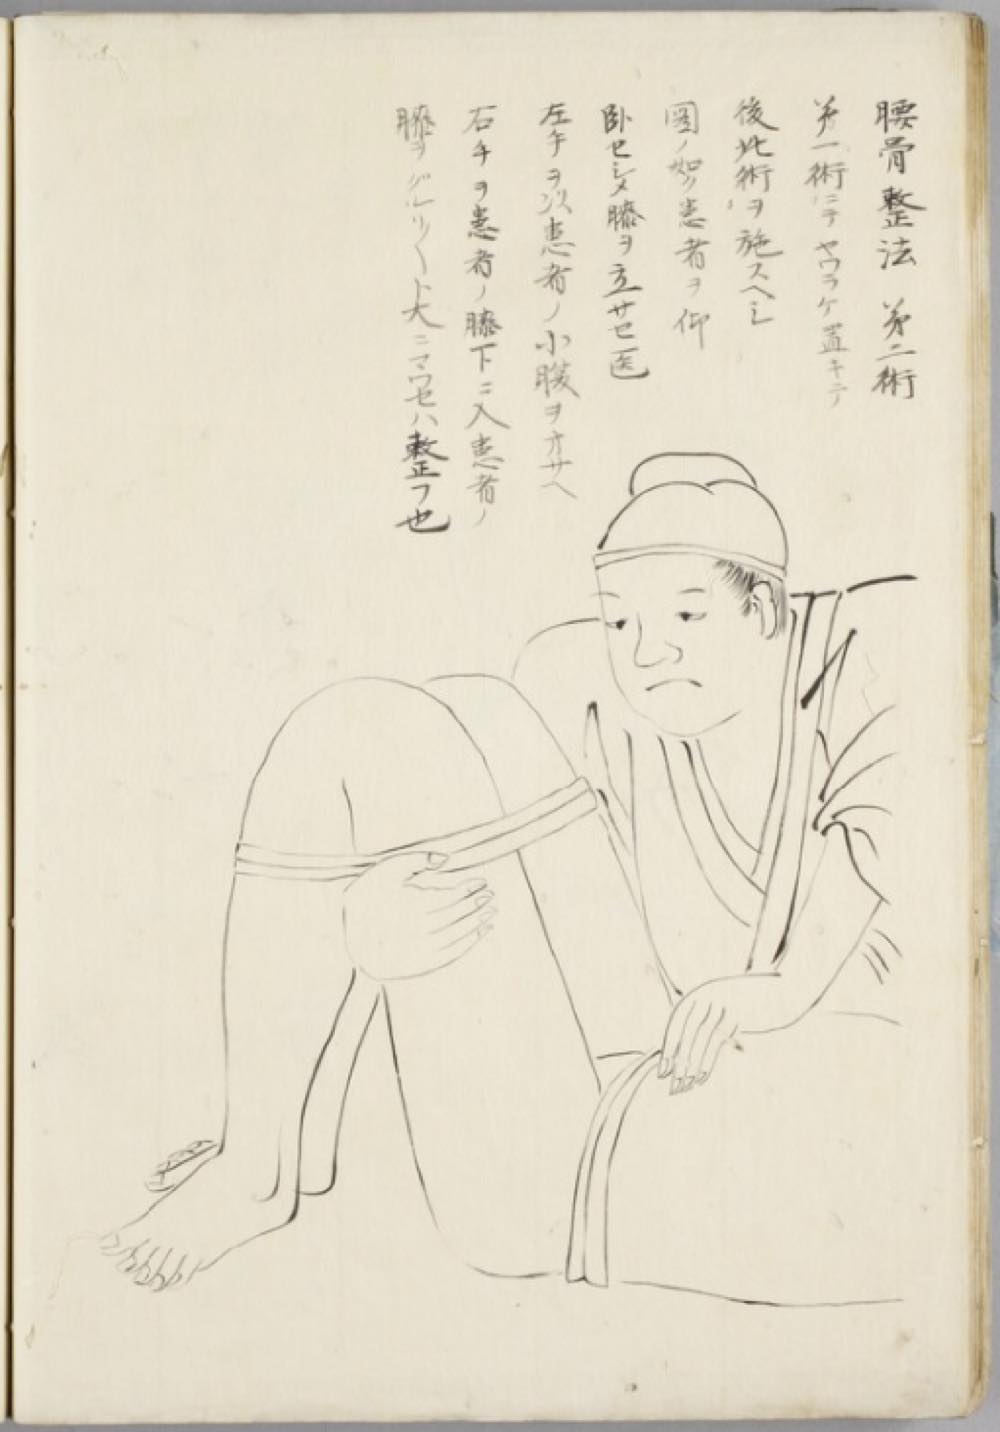 腰骨整法 第二術
第一術ニテヤワラケ置キテ
後此術ヲ施スヘシ
圖ノ如ク患者ヲ仰
臥セシメ膝ヲ立サセ医
左手ヲ以患者ノ小腹ヲオサヘ
右手ヲ患者ノ膝下ニ入患者ノ
膝ヲグルリ〱ト大ニマワセハ整フ也